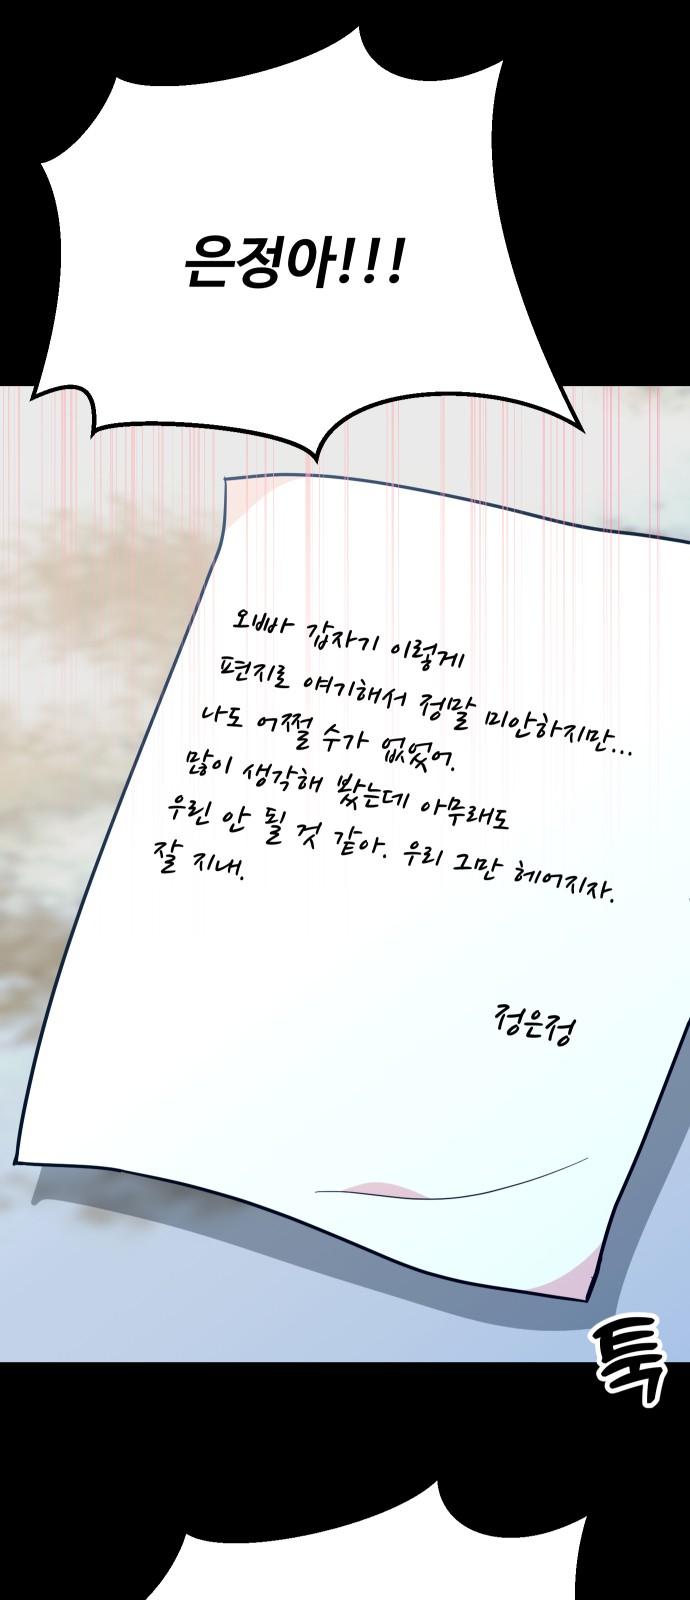 은정아!!!
오빠 갑자기 이렇게
편지로 얘기해서 정말 미안하지만...
나도 어쩔 수가 없었어.
많이 생각해 봤는데 아무래도
우린 안 될 것 같아. 우리 그만 헤어지자.
잘 지내.
정은정
툭